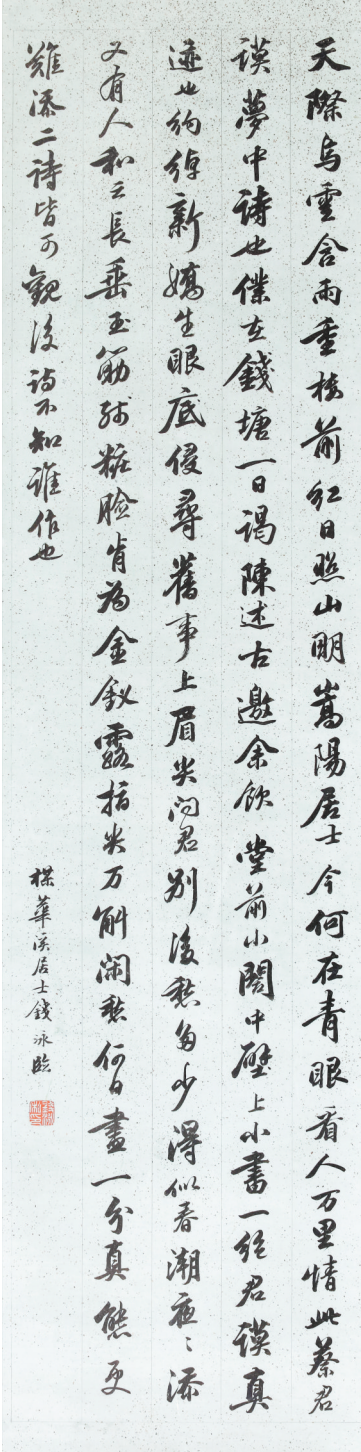 天際烏雲含雨重樓前紅日照山明嵩陽居士今何在青眼看人万里情此蔡君
謨夢中詩也僕在錢塘一日謁陳述古邀余飲堂前小閣中壁上小書一絕君謨真
迹也約綽新嬌生眼底侵尋舊事上眉尖問君別後愁多少得似春潮夜〻添
又有人和云長垂玉筋殘粧臉肯為金釵露指尖万斛閑愁何日盡一分真態更
難添二詩皆可觀後詩不知誰作也
楳華溪居士錢泳臨